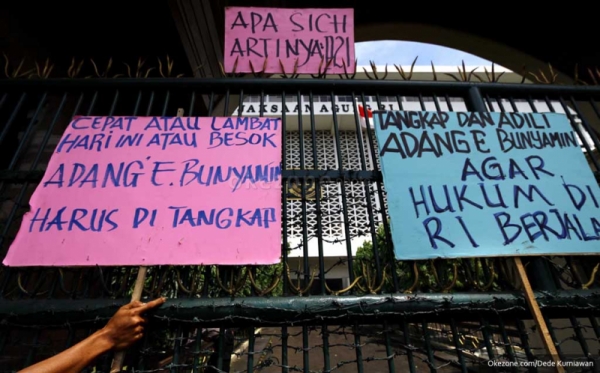 APA SICH
ARTINYA
CEPAT ATAU LAMBAT
HARI INI ATAU BESOK
ADANG E. BUNYAMIN
HARUS DI TANGKAP
JAKSAAN AGUNG R.I
TANGKAP DAN ADILI
ADANG E BUNYAMIN
AGAR
HUKUM DI
RI BERJALA
Okezone.com/Dede Kurniawan